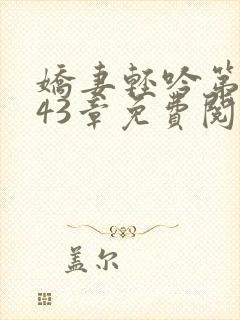 嬌妻輕吟第
43章免費閱
盖尔